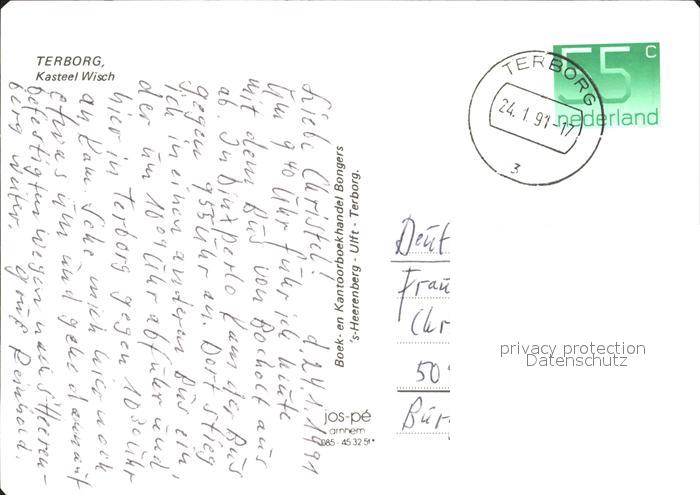 TERBORG,
Kasteel Wisch
Liebe Christel! d. 24.1.1991
Um 9 40 Uhr fuhr ich heute
mit dem Bus von Bocholt aus
ab. In Dinxperlo kam der Bus
gegen 9 55 Uhr an. Dort stieg
ich in einen anderen Bus ein,
der um 10 09 Uhr abfuhr und
hier in Terborg gegen 10 30 Uhr
an kam. Sehe mich hier noch
etwas um und gehe dann auf
befestigten wegen nach s'Heeren-
berg weiter. Gruß Reinhold.
Boek- en Kantoorboekhandel Bongers
's-Heerenberg - Ulft - Terborg.
jos-pé
arnhem
085 - 45 32 51*
TERBORG
24.1.91-17
3
55 c
nederland
Deut
Frau
Chr
50
Bur
privacy protection
Datenschutz